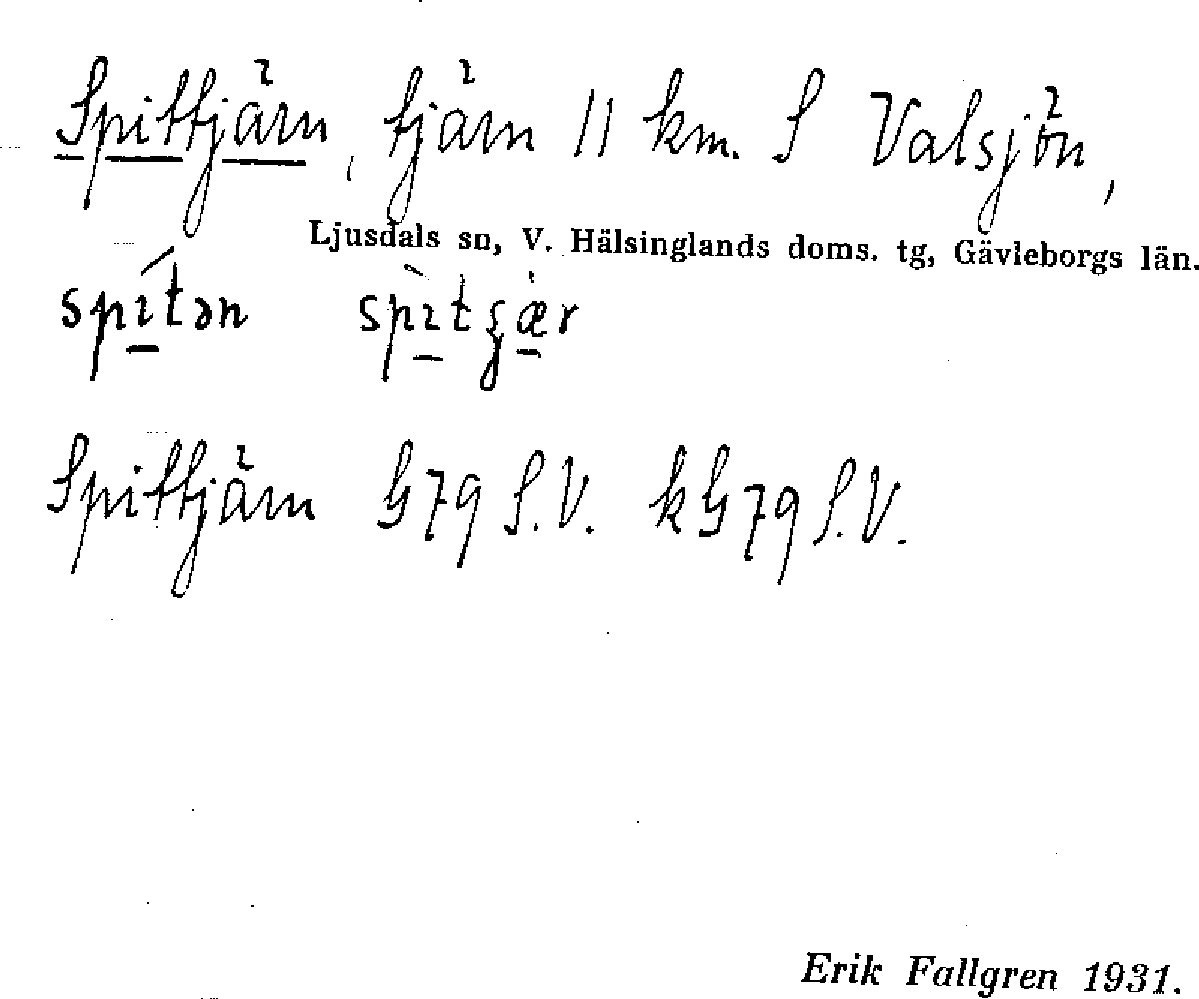 Spittjärn, tjärn 11 km. S Valsjön,
Ljusdals sn, V. Hälsinglands doms. tg, Gävleborgs län.
spı́tən spı̀tʂæ̇r
Spittjärn G79 S.V. kG79 S.V.
Erik Fallgren 1931.